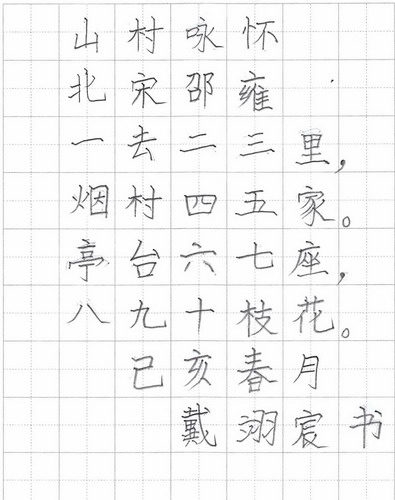 山村咏怀
北宋邵雍
一去二三里，
烟村四五家。
亭台六七座，
八九十枝花。
己亥春月
戴翊宸书